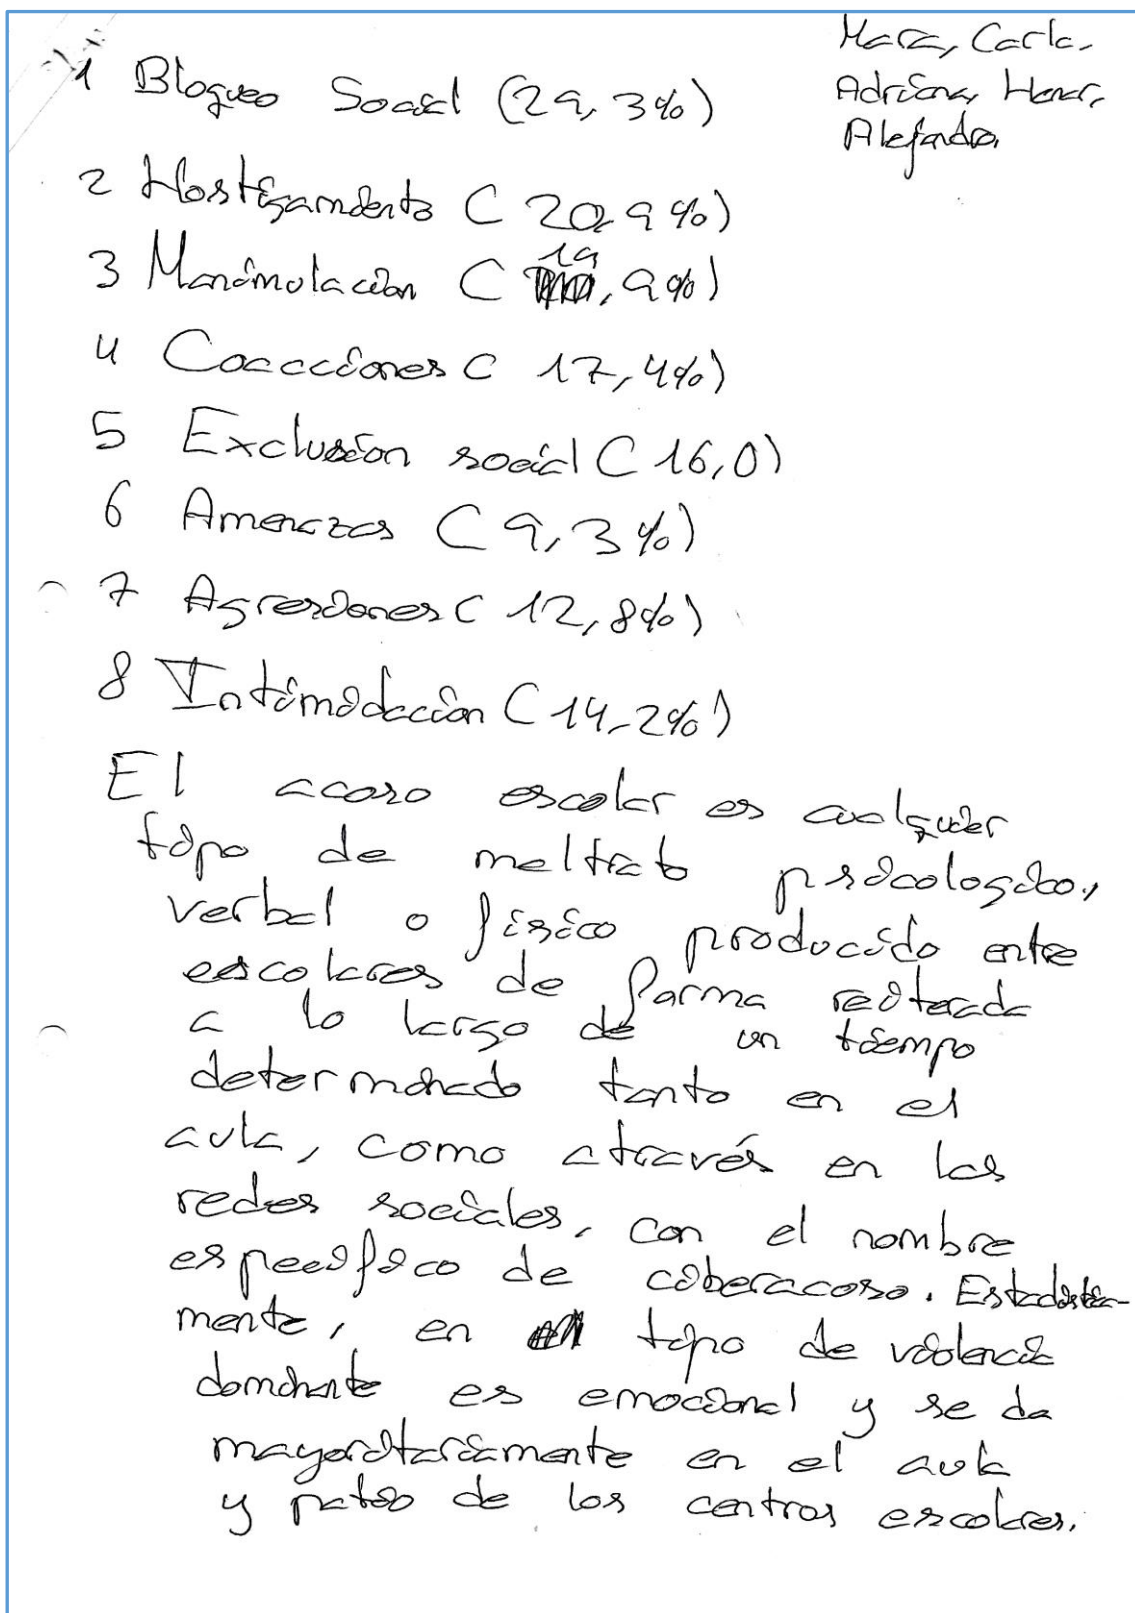 Mara, Carla,
Adriana, Henar,
Alejandro,
1 Bloqueo Social (29,3%)
2 Hostigamiento (20,9%)
3 Manimulación (19,9%)
4 Coacciones (17,4%)
5 Exclusión social (16,0)
6 Amenazas (9,3%)
7 Agresiones (12,8%)
8 Intimidación (14,2%)
El acoso escolar es cualquier
tipo de maltrato psicologico,
verbal o físico producido entre
escolares de forma reiterada
a lo largo de un tiempo
determinado tanto en el
aula, como através en las
redes sociales, con el nombre
especifico de ciberacoso. Estadística-
mente, en tipo de violencia
dominante es emocional y se da
mayoritariamente en el aula
y patio de los centros escolares.